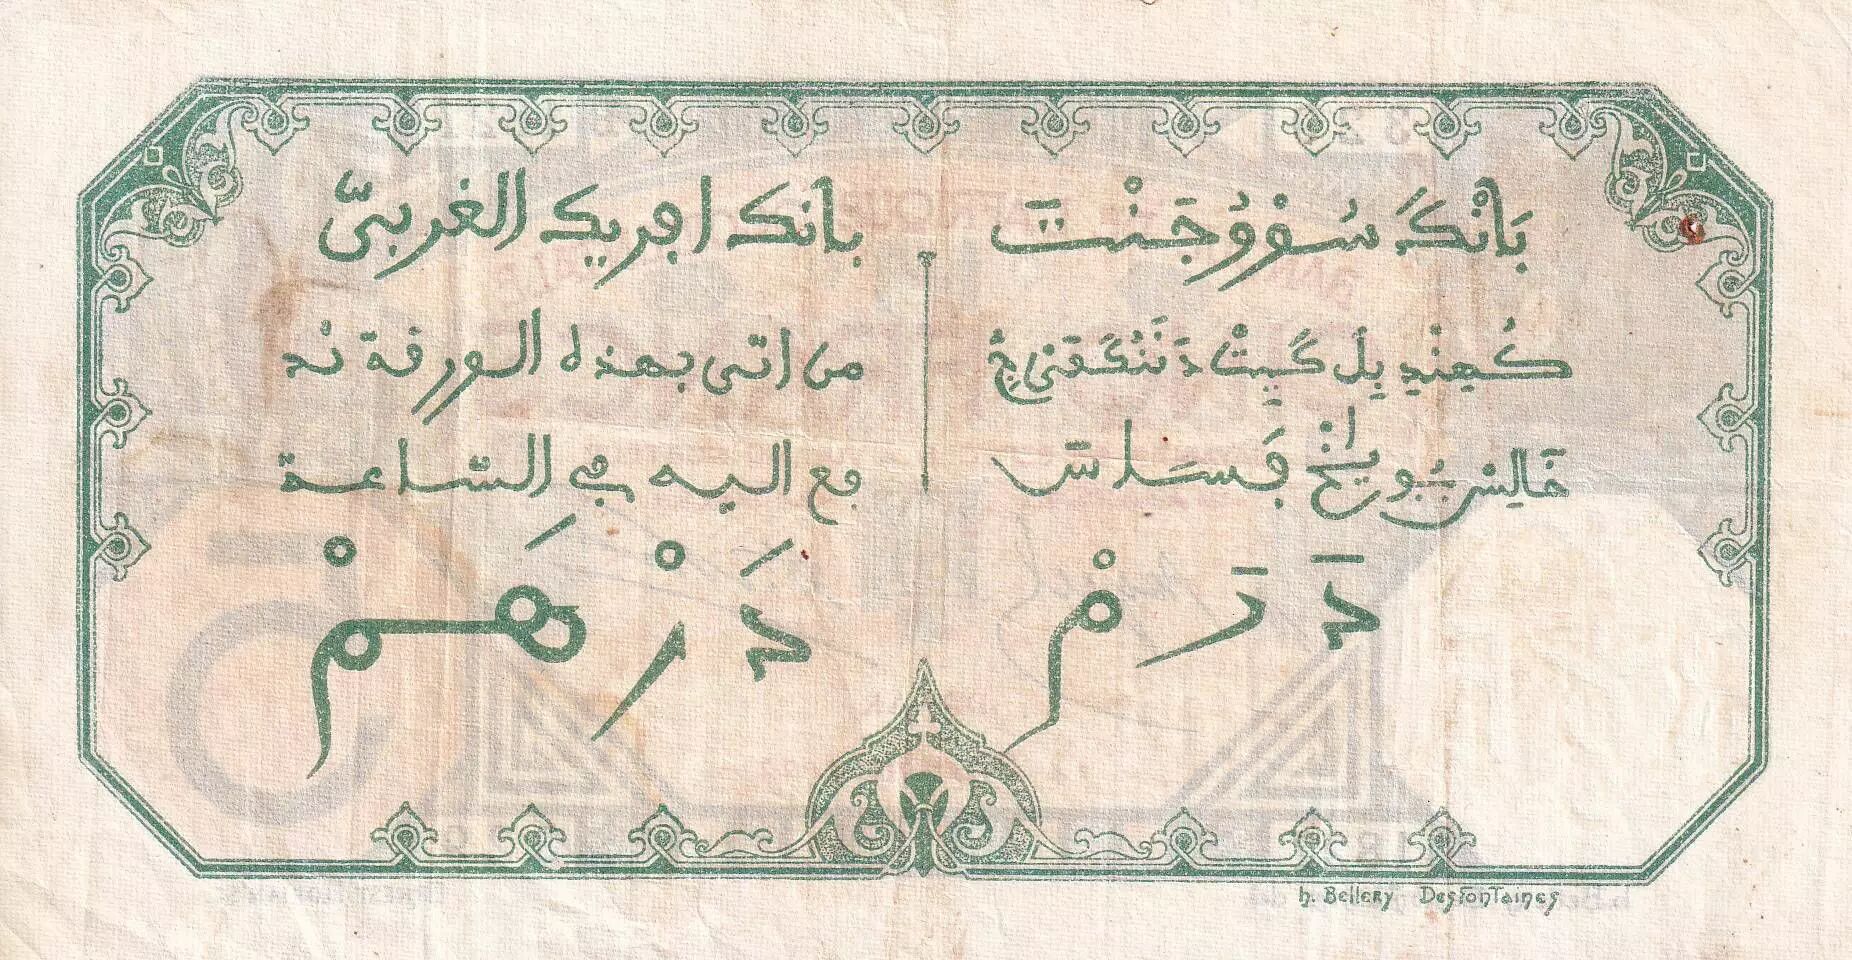 بَانْکَ سُفْوُجَنْتَ
كُهِنْدِ بِلَ گَيِتْ دَنَنْگَقَنِ جْ
خَالِسْ بُبُو يَاخْ فَسَلاس
دَرَمْ
بانك افريك الغربيّ
من اتى بهذه الورقة ند
فع اليه في الساعة
دَرْهَمْ
h. Bellery Desfontaines